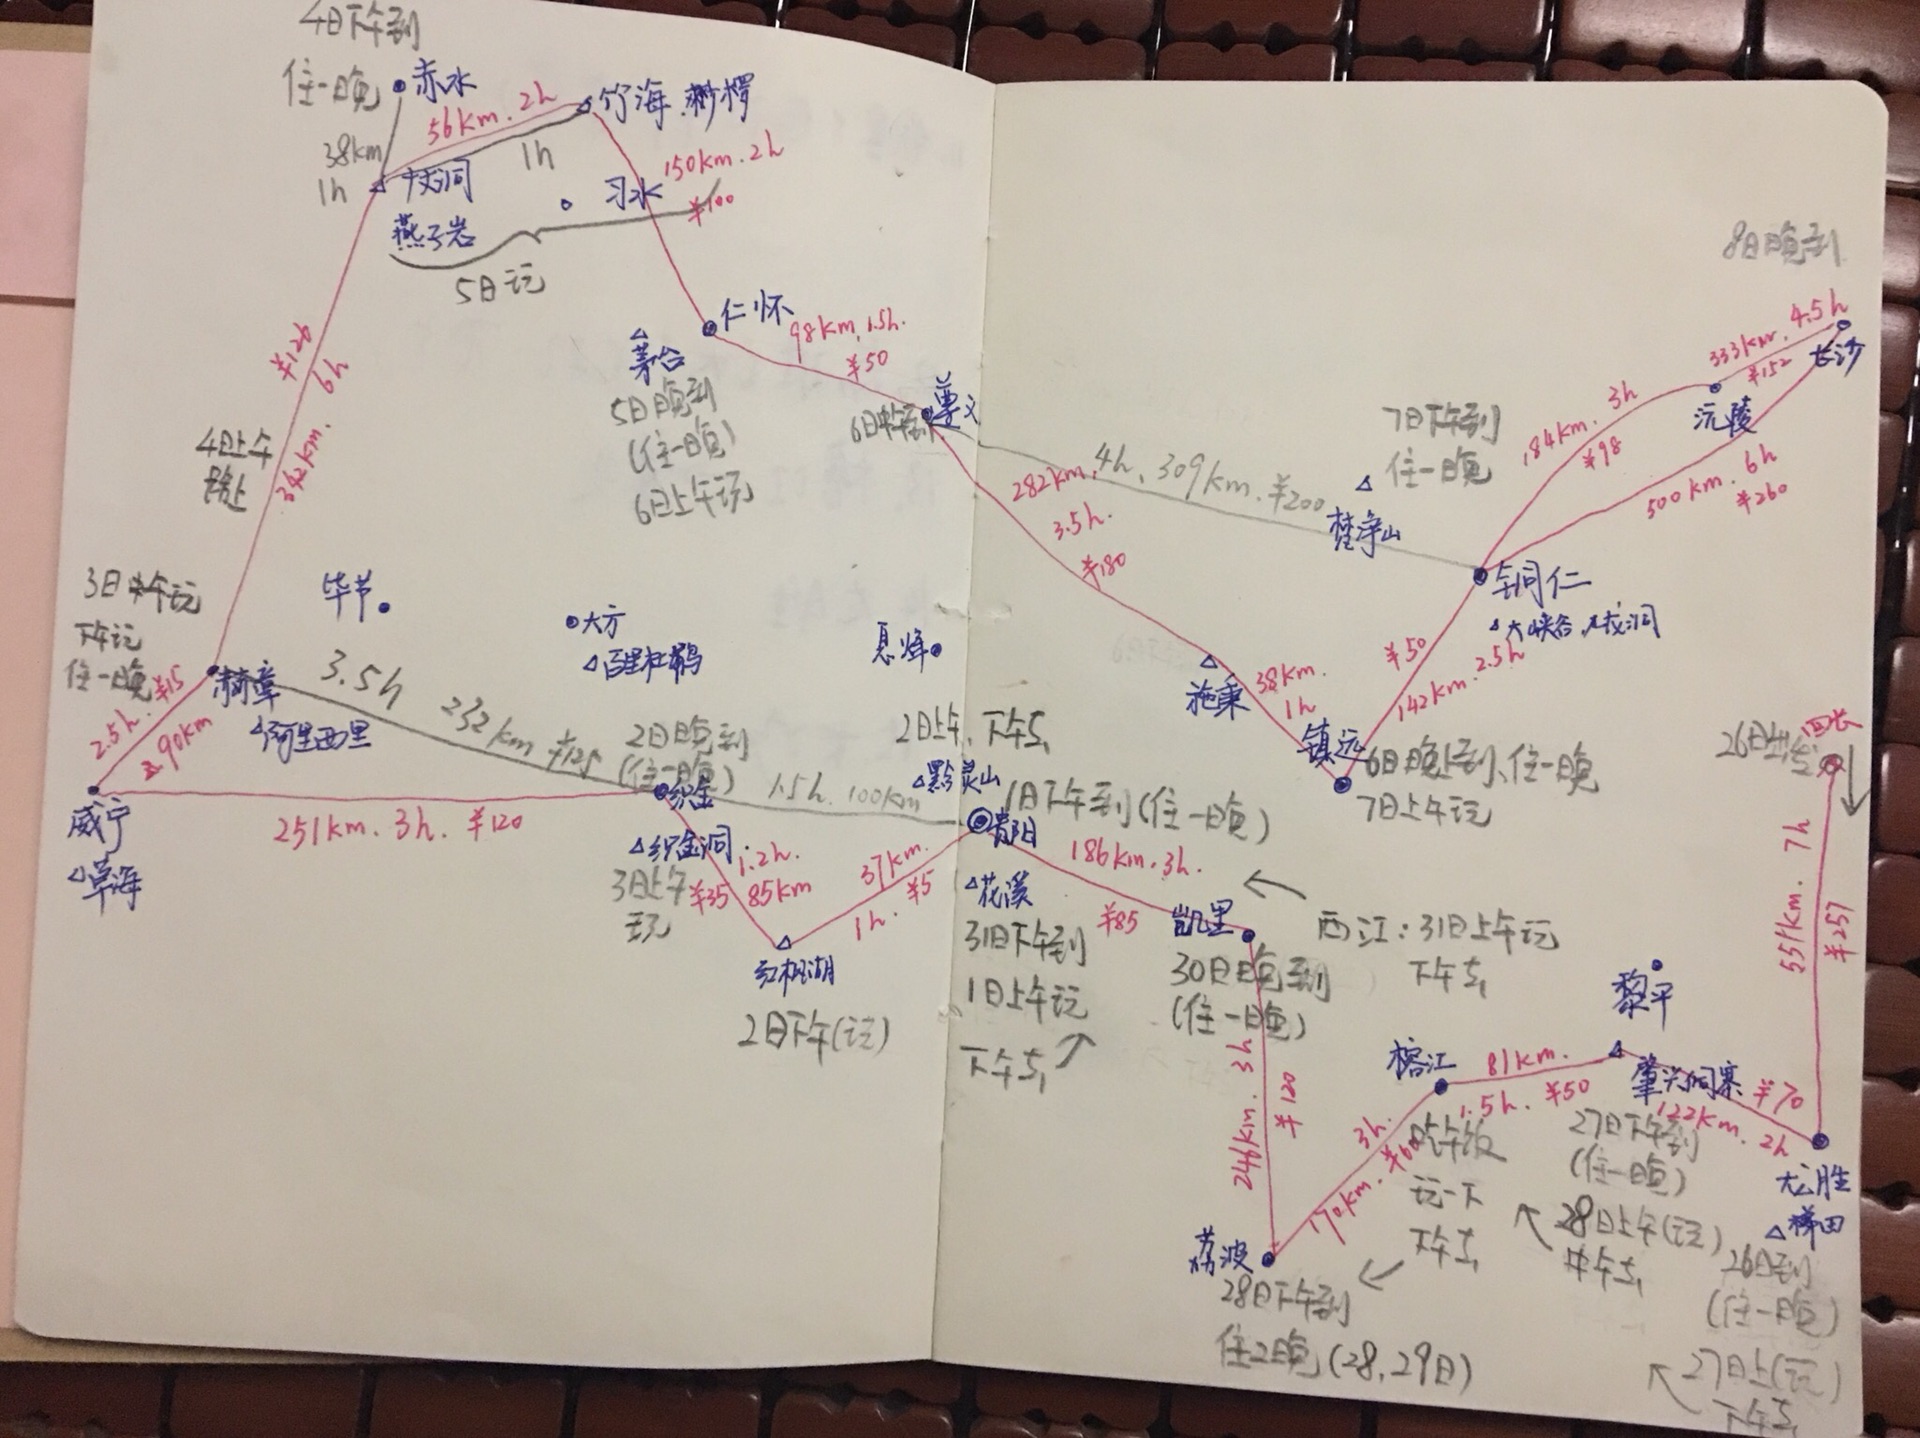 4日下午到
住一晚
赤水
56km.2h
竹海.桫椤
38km
1h
1h
150km.2h
¥100
习水
燕子岩
5日玩
仁怀
98km,1.5h.
¥50
茅台
5日晚到
(住一晚)
6日上午玩
遵义
¥120
6h
342km.
4日上午
3日中午玩
下午玩
住一晚
毕节
大方
百里杜鹃
息烽
赫章
阿里西里
3.5h
232km
¥125
¥15
2.5h.
90km
威宁
草海
251km.3h.¥120
2日晚到
(住一晚)
织金
织金洞
3日上午
玩
1.5h.100km
1.2h.
85km
¥35
37km.
1h.¥5
红枫湖
2日下午(玩)
2日上午、下午去
黔灵山
贵阳
1日下午到(住一晚)
花溪
31日下午到
1日上午玩
下午去
186km.3h.
¥85
凯里
30日晚到
(住一晚)
西江:31日上午玩
下午去
246km.3h
¥120
荔波
28日下午到
住2晚(28,29日)
170km.
3h.
榕江
吃午饭
玩一下
下午去
81km.
1.5h.¥50
黎平
肇兴侗寨
27日下午到
(住一晚)
28日上午(玩)
中午去
¥70
122km.2h
龙胜
梯田
26日到
(住一晚)
27日上(玩)
下午去
26日出发
551km.7h
¥257
8日晚到
长沙
333km.4.5h
¥152
沅陵
184km.3h
¥98
500km.6h
¥260
7日下午到
住一晚
梵净山
4h、309km.¥200
282km,
3.5h.
¥180
铜仁
¥50
142km.2.5h
施秉
38km.
1h
镇远
6日晚上到、住一晚
7日上午玩